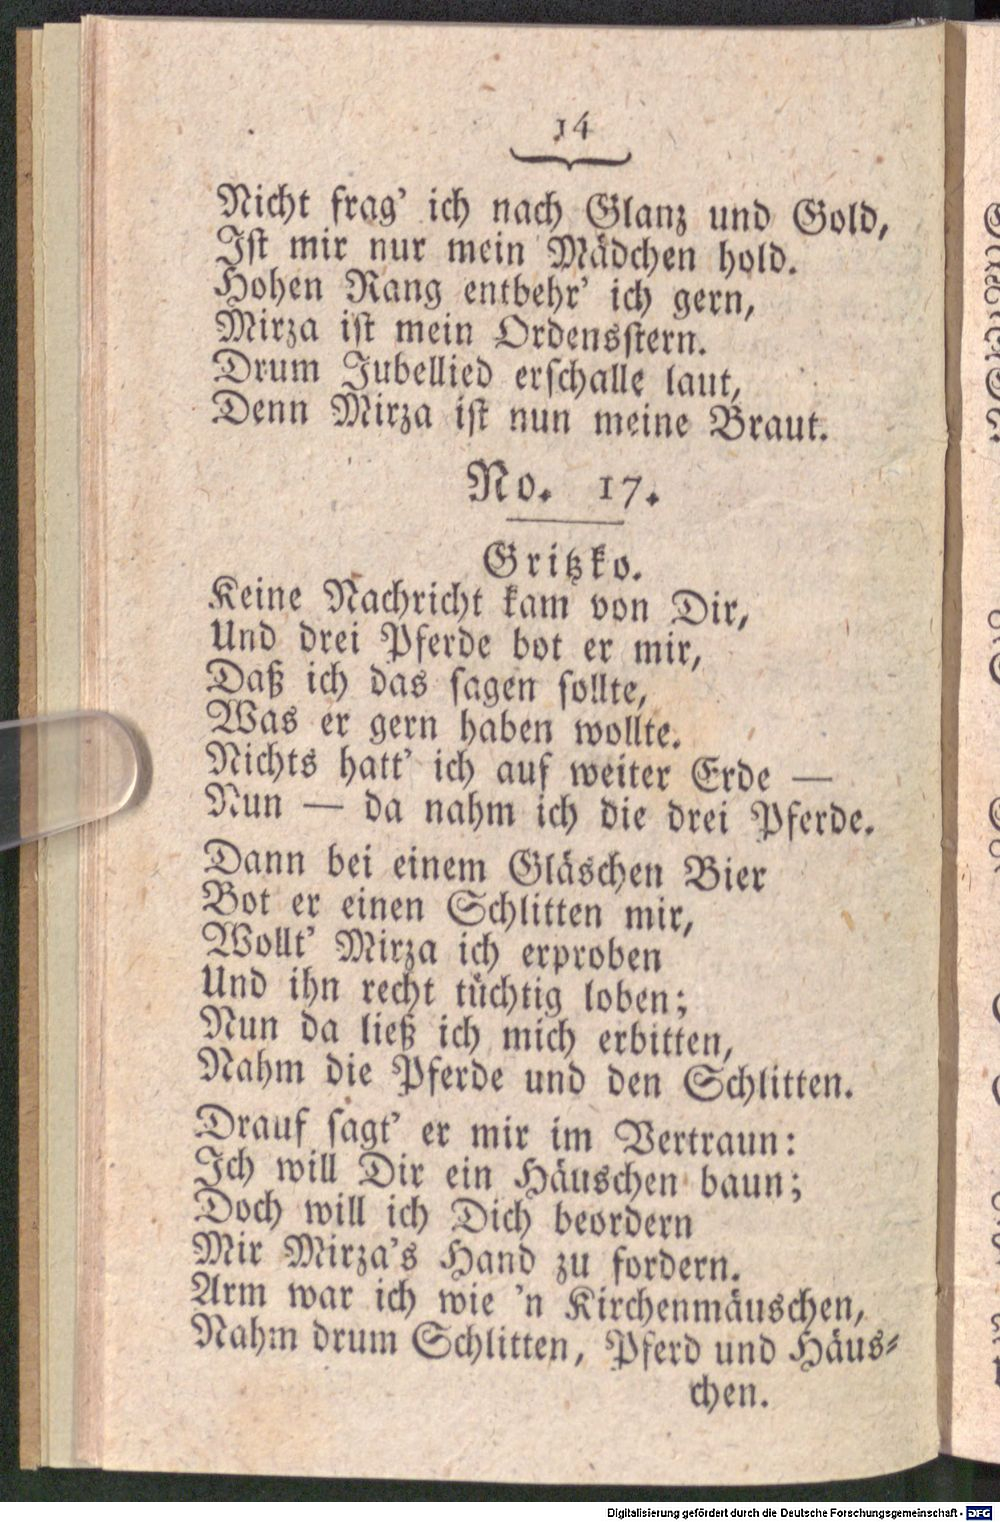 14
Nicht frag' ich nach Glanz und Gold,
Ist mir nur mein Mädchen hold.
Hohen Rang entbehr' ich gern,
Mirza ist mein Ordensstern.
Drum Jubellied erschalle laut,
Denn Mirza ist nun meine Braut.
No. 17.
Gritzko.
Keine Nachricht kam von Dir,
Und drei Pferde bot er mir,
Daß ich das sagen sollte,
Was er gern haben wollte.
Nichts hatt' ich auf weiter Erde —
Nun — da nahm ich die drei Pferde.
Dann bei einem Gläschen Bier
Bot er einen Schlitten mir,
Wollt' Mirza ich erproben
Und ihn recht tüchtig loben;
Nun da ließ ich mich erbitten,
Nahm die Pferde und den Schlitten.
Drauf sagt' er mir im Vertraun:
Ich will Dir ein Häuschen baun;
Doch will ich Dich beordern
Mir Mirza's Hand zu fordern.
Arm war ich wie 'n Kirchenmäuschen,
Nahm drum Schlitten, Pferd und Häus-
chen.
Digitalisierung gefördert durch die Deutsche Forschungsgemeinschaft - DFG